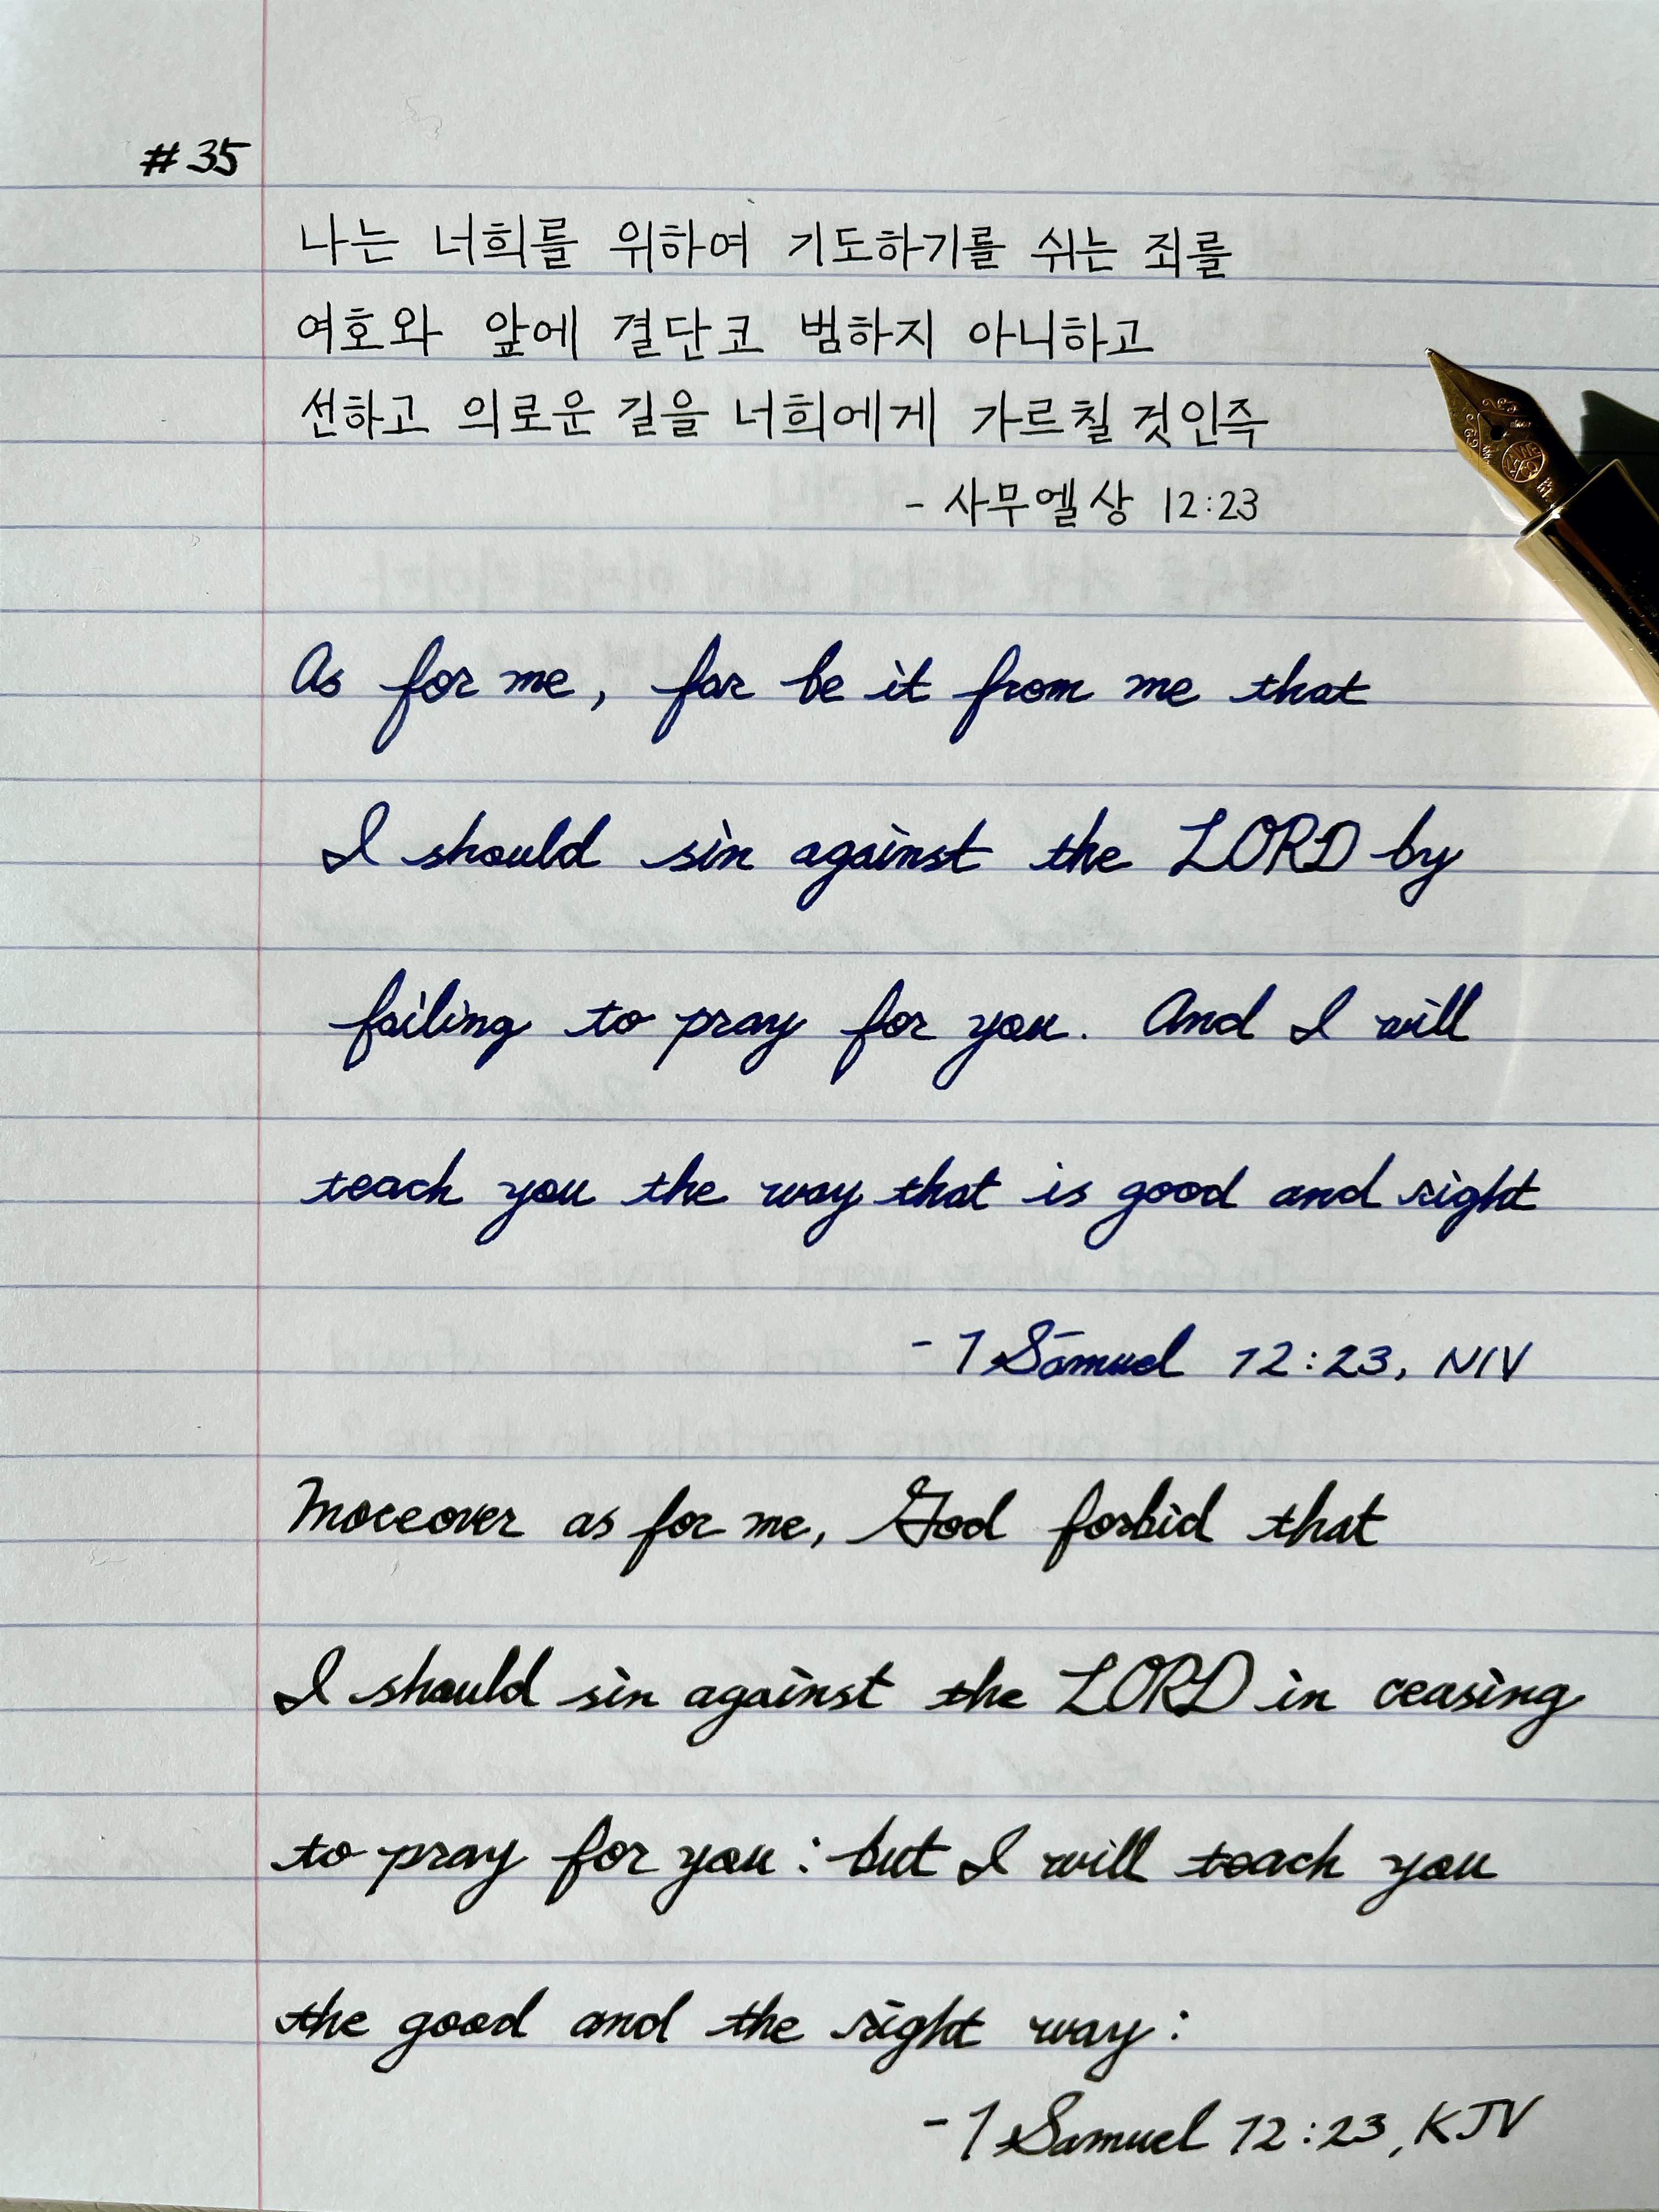 #35
나는 너희를 위하여 기도하기를 쉬는 죄를
여호와 앞에 결단코 범하지 아니하고
선하고 의로운 길을 너희에게 가르칠 것인즉
- 사무엘상 12:23
As for me, far be it from me that
I should sin against the LORD by
failing to pray for you. And I will
teach you the way that is good and right
- 1 Samuel 12:23, NIV
Moreover as for me, God forbid that
I should sin against the LORD in ceasing
to pray for you: but I will teach you
the good and the right way:
- 1 Samuel 12:23, KJV